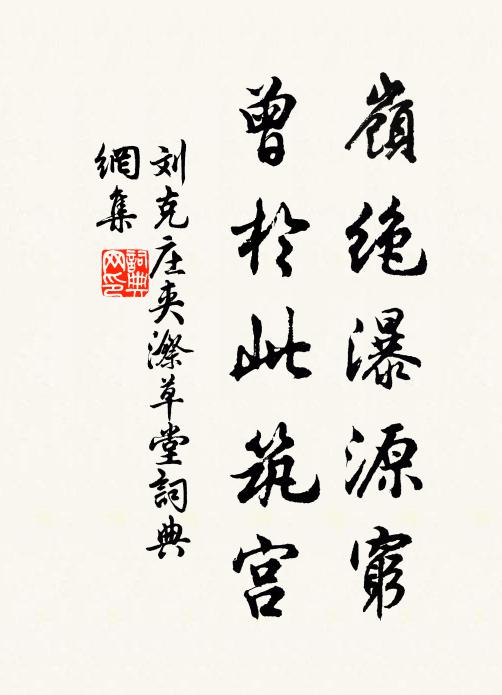 嶺绝瀑源窮
曾於此筑宫
刘克庄夹漈草堂詞典
網集
詞典
网印